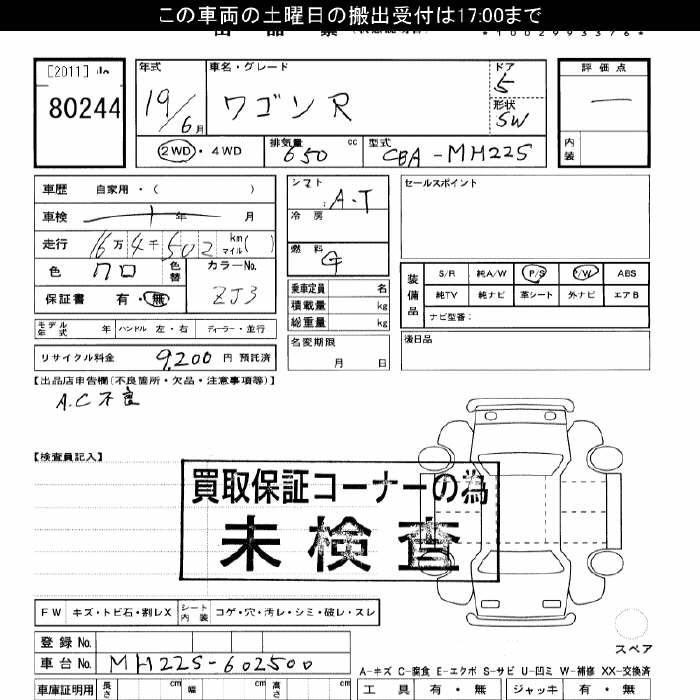 この車両の土曜日の搬出受付は17:00まで
出品票
*1002993376*
[2011]
80244
年式 19/6月
車名・グレード ワゴンR
ドア 5
形状 SW
評価点 —
内装
2WD・4WD
排気量 650 cc
型式 CBA-MH22S
車歴 自家用・( )
車検 年 月
走行 16万4千502 km マイル( )
色 クロ 色替
カラーNo. ZJ3
保証書 有・無
シフト A・T
冷房
燃料 G
乗車定員 名
積載量 kg
総重量 kg
名変期限 月 日
セールスポイント
装備品
S/R 純A/W P/S P/W ABS
純TV 純ナビ 革シート 外ナビ エアB
ナビ型番:
後日品
モデル年式 年 ハンドル 左・右 ディーラー・並行
リサイクル料金 9,200 円 預託済
【出品店申告欄(不良箇所・欠品・注意事項等)】
A.C不良
【検査員記入】
買取保証コーナーの為
未検査
FW キズ・トビ石・割レX シート内装 コゲ・穴・汚レ・シミ・破レ・スレ
スペア
登録No.
車台No. MH22S-602500
A-キズ C-腐食 E-エクボ S-サビ U-凹ミ W-補修 XX-交換済
車庫証明用 長さ cm 幅 cm 高さ cm
工具 有・無 ジャッキ 有・無